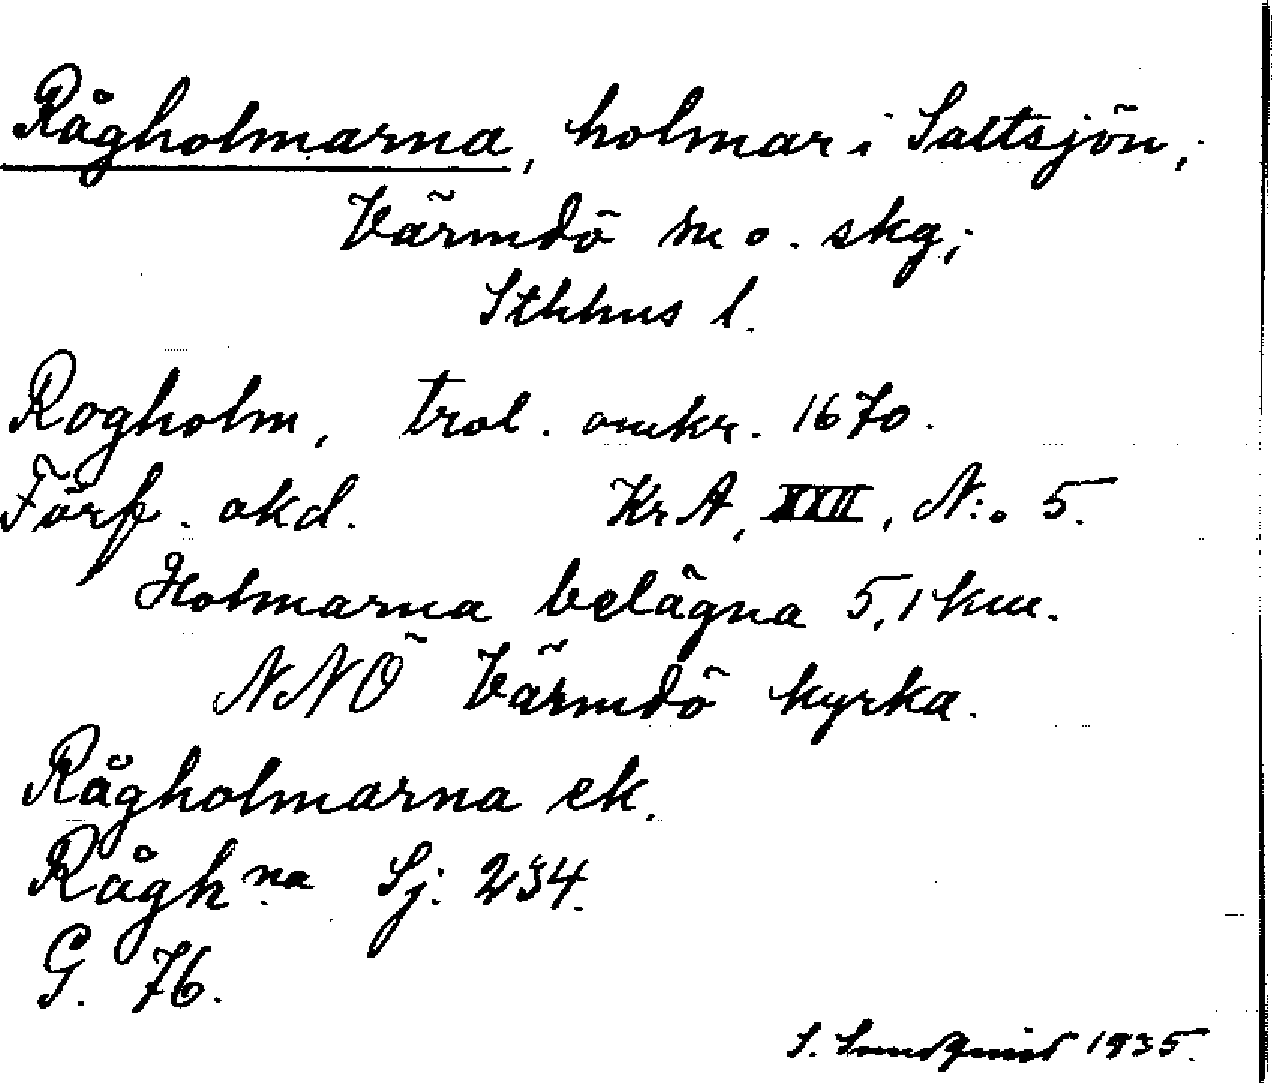 Rågholmarna, holmar i Saltsjön,
Värmdö sn o. skg;
Sthlms l.
Rogholm, trol. omkr. 1670.
Förf. okd. KrA, XXII, N:o 5.
Holmarna belägna 5,1 km.
NNÖ Värmdö kyrka.
Rågholmarna ek.
Rågh.na Sj. 234.
G. 76.
S. Sundquist 1935.